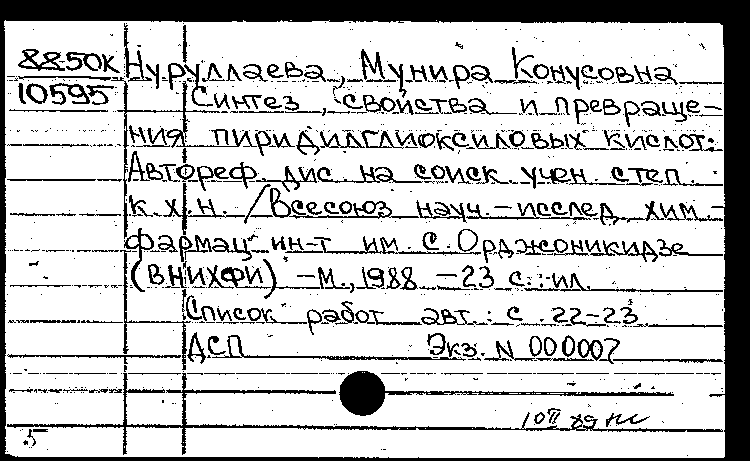 8850К Нуруллаева, Мунира Конусовна
10595 Синтез, свойства и превраще-
ния пиридилглиоксиловых кислот:
Автореф. дис. на соиск. учен. степ.
к.х.н. /Всесоюз науч.-исслед. хим.-
фармац. ин-т им. С. Орджоникидзе
(ВНИХФИ) -М., 1988 -23 с.: ил.
Список работ авт.: с. 22-23
ДСП Экз. N 000007
5